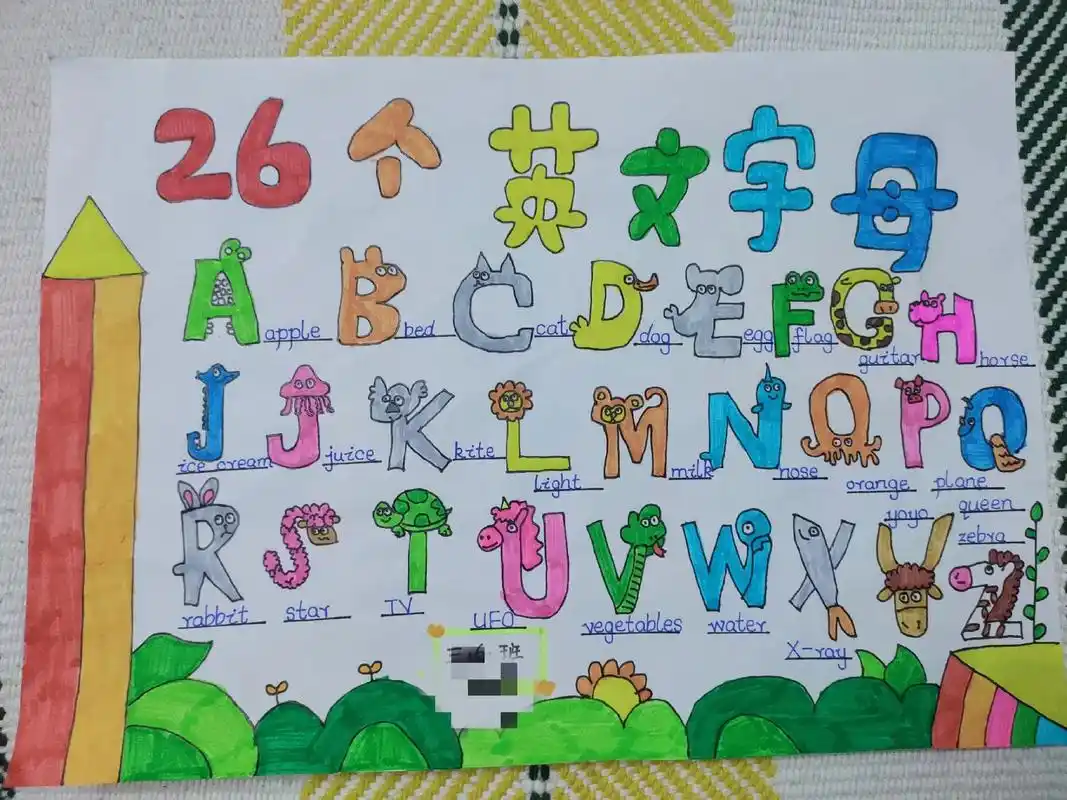 26个英文字母
A apple B bed C cat D dog E egg F flag G guitar H horse
I ice cream J juice K kite L light M milk N nose O orange P plane Q queen
R rabbit S star T TV U UFO V vegetables W water X X-ray Y yoyo Z zebra
班